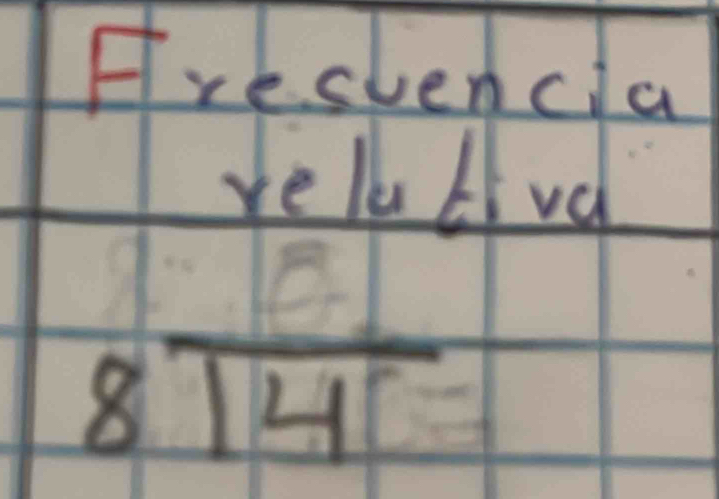 Frecuencia
relativa
8 14